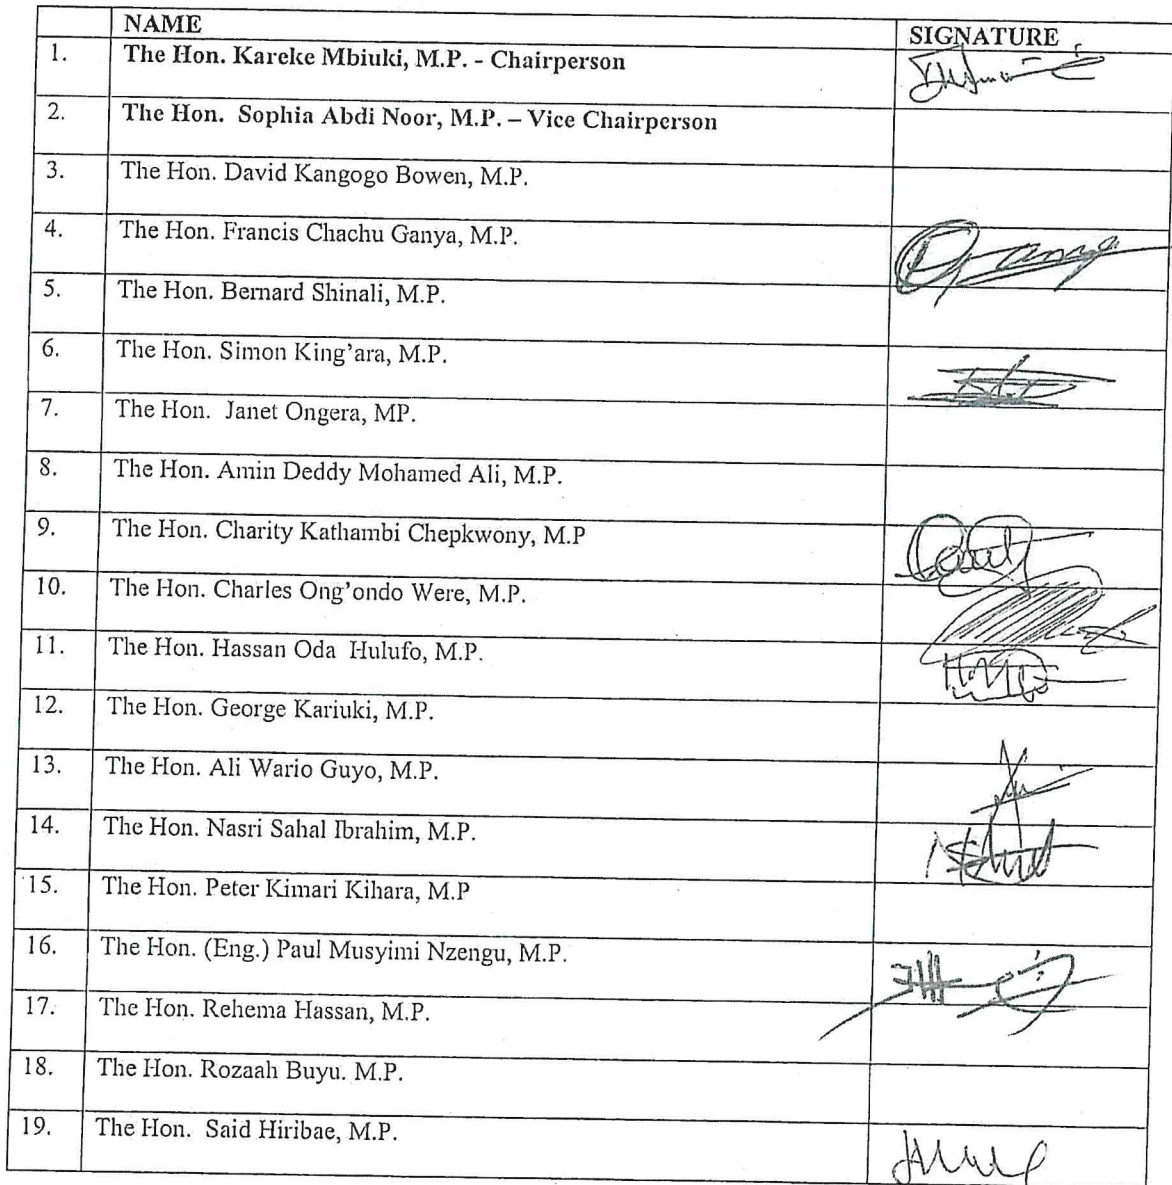 NAME SIGNATURE
1. The Hon. Kareke Mbiuki, M.P. - Chairperson
2. The Hon. Sophia Abdi Noor, M.P. – Vice Chairperson
3. The Hon. David Kangogo Bowen, M.P.
4. The Hon. Francis Chachu Ganya, M.P.
5. The Hon. Bernard Shinali, M.P.
6. The Hon. Simon King'ara, M.P.
7. The Hon. Janet Ongera, MP.
8. The Hon. Amin Deddy Mohamed Ali, M.P.
9. The Hon. Charity Kathambi Chepkwony, M.P
10. The Hon. Charles Ong'ondo Were, M.P.
11. The Hon. Hassan Oda Hulufo, M.P.
12. The Hon. George Kariuki, M.P.
13. The Hon. Ali Wario Guyo, M.P.
14. The Hon. Nasri Sahal Ibrahim, M.P.
15. The Hon. Peter Kimari Kihara, M.P
16. The Hon. (Eng.) Paul Musyimi Nzengu, M.P.
17. The Hon. Rehema Hassan, M.P.
18. The Hon. Rozaah Buyu. M.P.
19. The Hon. Said Hiribae, M.P.